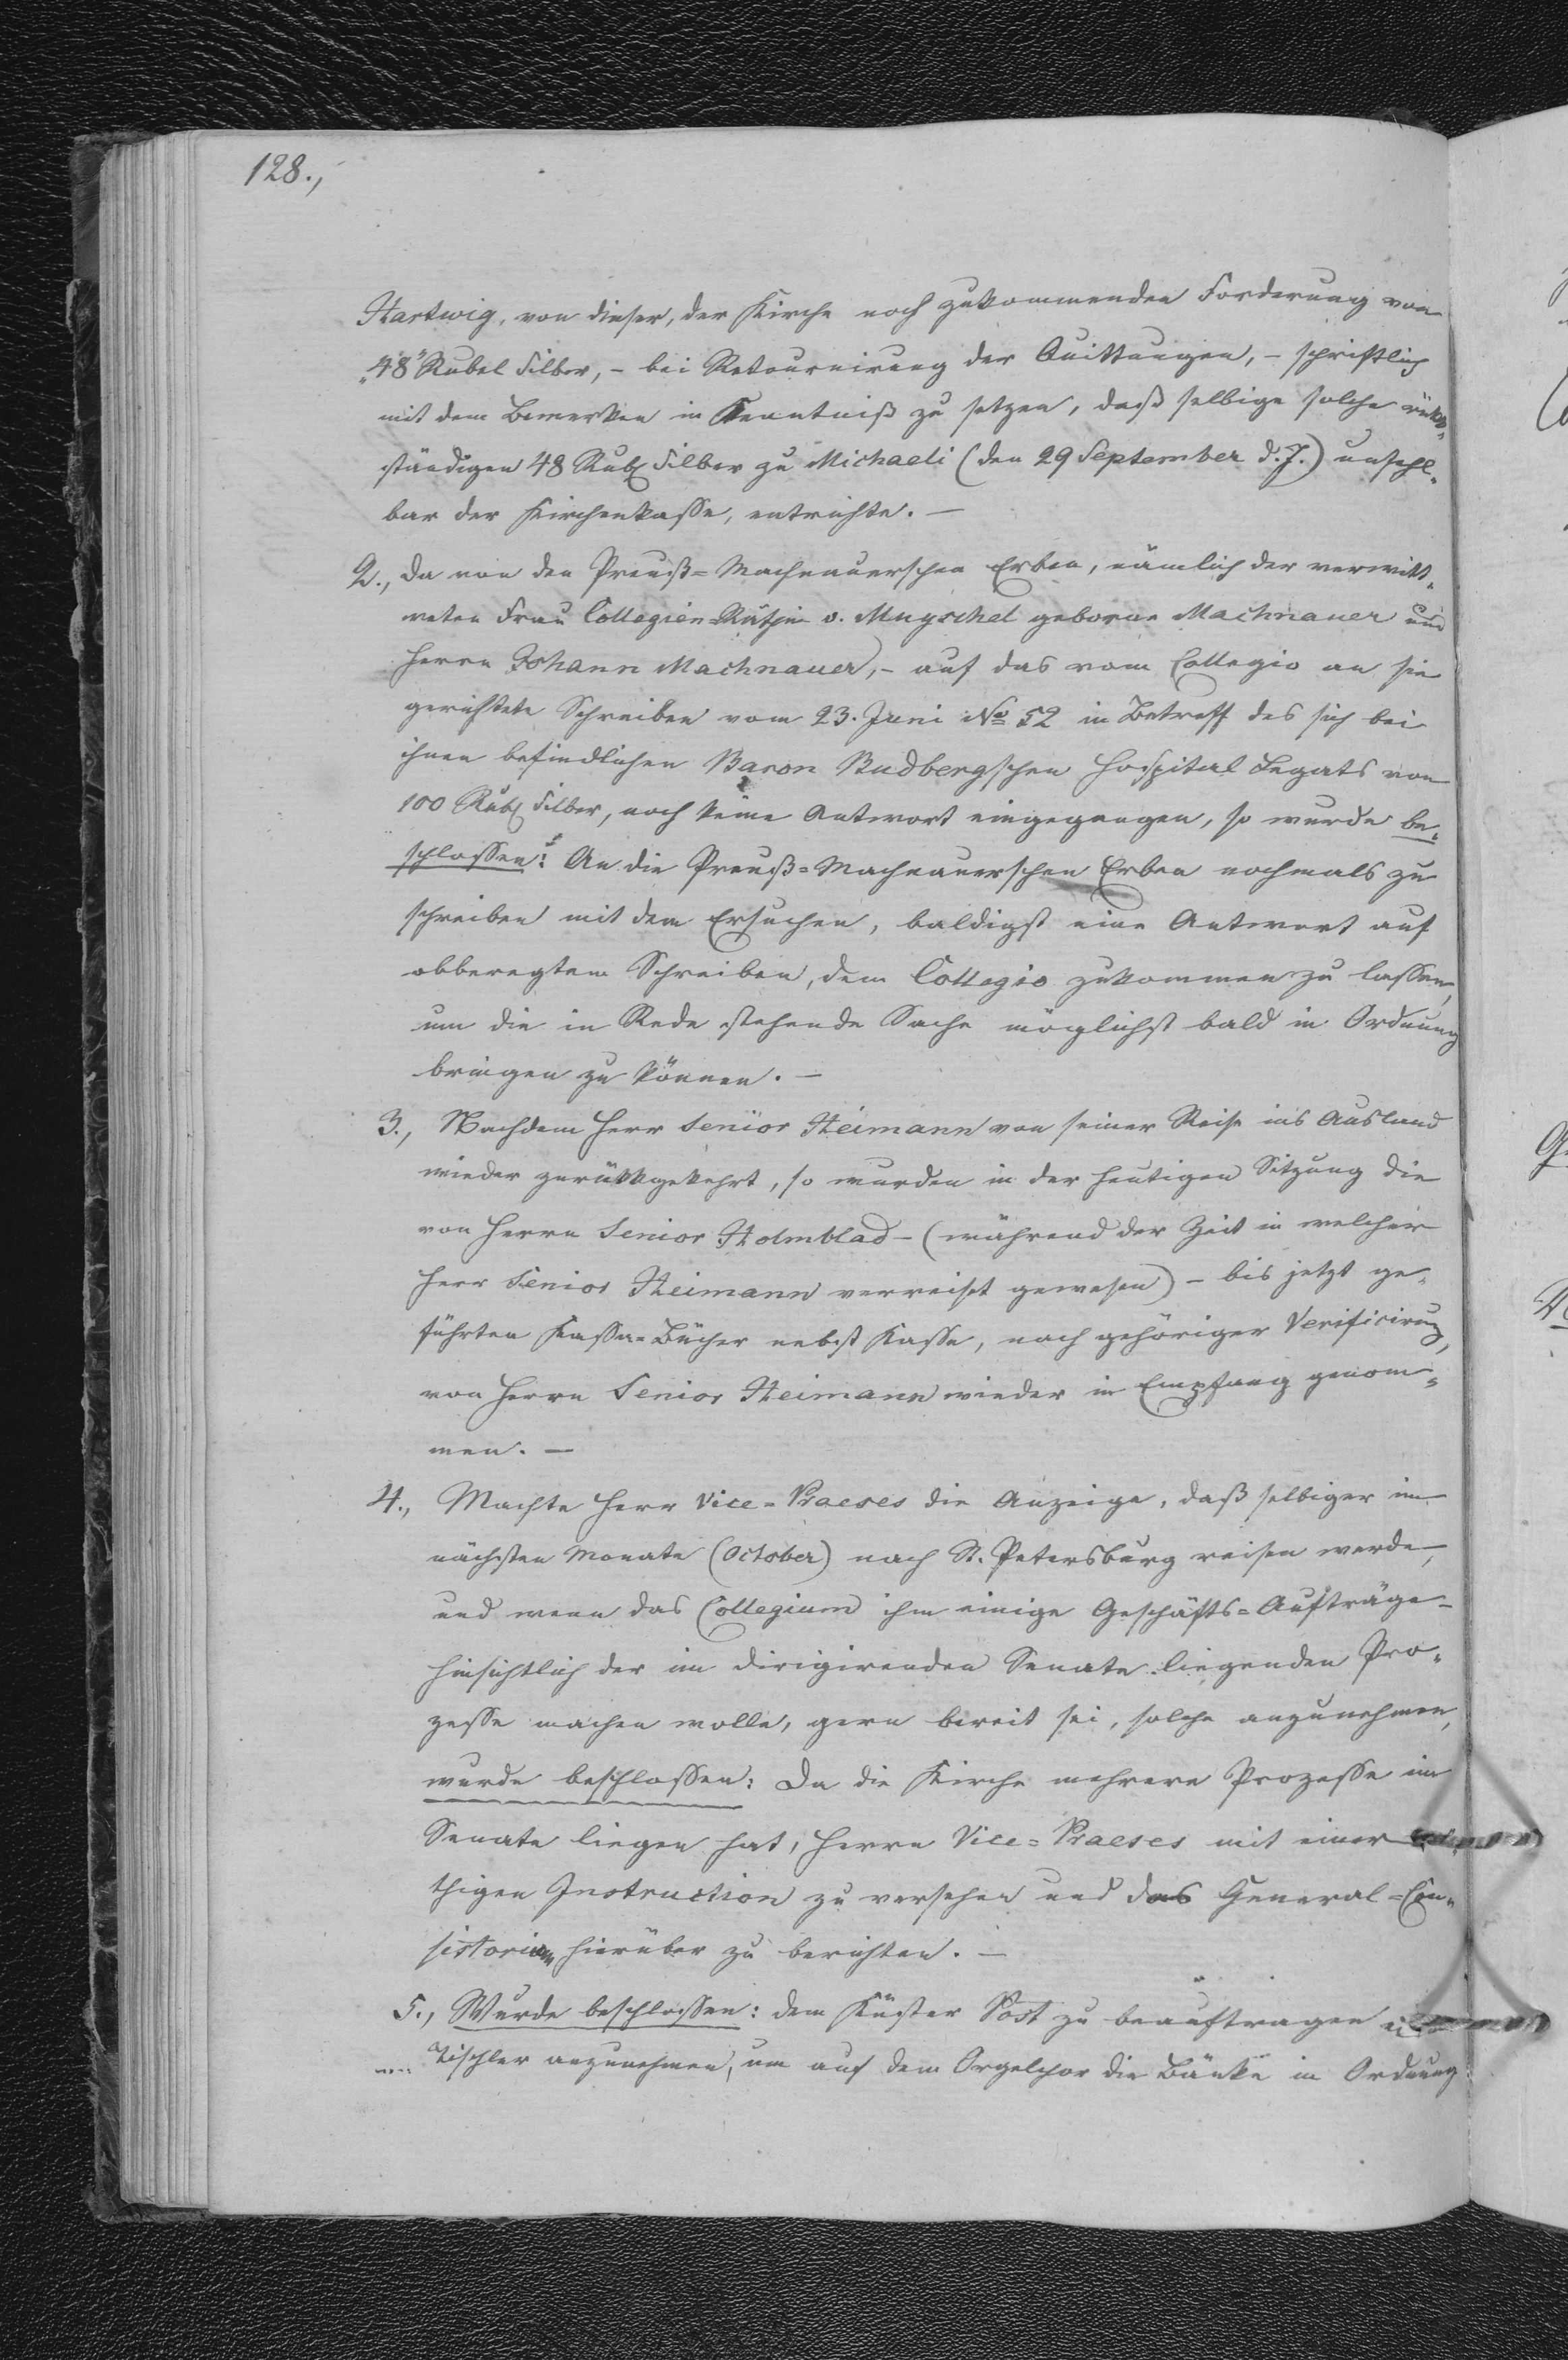 128.,
Hartwig, von dieser, der Kirche noch zukommenden Forderung von
„48" Rubel Silber, – bei Retournirung der Quittungen, – schriftlich
mit dem Bemerken in Kenntniß zu setzen, daß selbige solche rück„
ständigen 48 Rub Silber zu Michaeli (den 29 September d. J.) unfehl„
bar der Kirchenkasse, entrichte. –
2., Da von den Preuß=Machnauerschen Erben, nämlich der verwitt„
weten Frau Collegien-Räthin v. Muyschel geborne Machnauer und
Herrn Johann Machnauer, – auf das vom Collegio an sie
gerichtete Schreiben vom 23. Juni No 52 in Betreff des sich bei
ihnen befindlichen Baron Budbergschen Hospital Legats von
100 Rub Silber, noch keine Antwort eingegangen, so wurde be„
schlossen: An die Preuß=Machnauerschen Erben nochmals zu
schreiben mit dem Ersuchen, baldigst eine Antwort auf
obberegtem Schreiben, dem Collegio zukommen zu lassen,
um die in Rede stehende Sache möglichst bald in Ordnung
bringen zu können. –
3., Nachdem Herr Senior Heimann von seiner Reise ins Ausland
wieder zurückgekehrt, so wurden in der heutigen Sitzung die
von Herrn Senior Holmblad – (während der Zeit in welcher
Herr Senior Heimann verreist gewesen) – bis jetzt ge„
führten Kassa=Bücher nebst Kasse, nach gehöriger Verificirung,
von Herrn Senior Heimann wieder in Empfang genom„
men. –
4., Machte Herr Vice=Praeses die Anzeige, daß selbiger im
nächsten Monate (October) nach St. Petersburg reisen werde,
und wenn das Collegium ihm einige Geschäfts=Aufträge
hinsichtlich der im dirigirenden Senate liegenden Pro„
zesse machen wolle, gern bereit sei, solche anzunehmen,
wurde beschlossen: Da die Kirche mehrere Prozesse im
Senate liegen hat, Herrn Vice=Praeses mit einer
thigen Instruction zu versehen und das General=Con„
sistorium hierüber zu berichten. –
5., Wurde beschlossen: dem Küster Post zu beauftragen
Tischler anzunehmen, um auf dem Orgelchor die Bänke in Ordnung